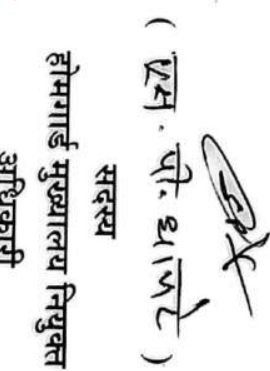 ( एम. पी. धाकरे )
सदस्य
होमगार्ड मुख्यालय नियुक्त
अधिकारी